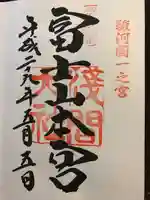 駿河國一之宮
富士山本宮
淺間大社
平成二九年五月五日